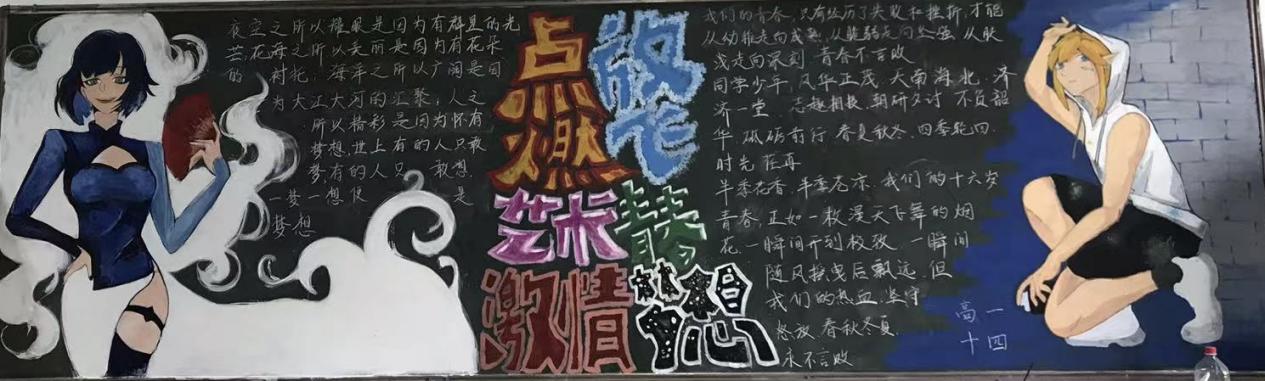 夜空之所以耀眼是因为有群星的光
芒,花海之所以美丽是因为有花朵
的 衬托, 海洋之所以广阔是因
为大江大河的汇聚,人之
所以精彩是因为怀有
梦想,世上有的人只敢
梦,有的人只 敢想,
一梦一想便 是
梦想
点燃
艺术
激情
放飞
青春
梦想
我们的青春,只有经历了失败和挫折,才能
从幼稚走向成熟,从脆弱走向坚强,从肤
浅走向深刻,青春不言败
同学少年,风华正茂,天南海北,济
济一堂,志趣相投,朝研夕讨,不负韶
华,砥砺前行,春夏秋冬,四季轮回,
时光荏苒
半季花香,半季苍凉,我们的十六岁
青春,正如一枚漫天飞舞的烟
花,一瞬间开到极致,一瞬间
随风摇曳后飘远,但
我们的热血,坚守
怒放,春秋冬夏,
永不言败
高一
十四